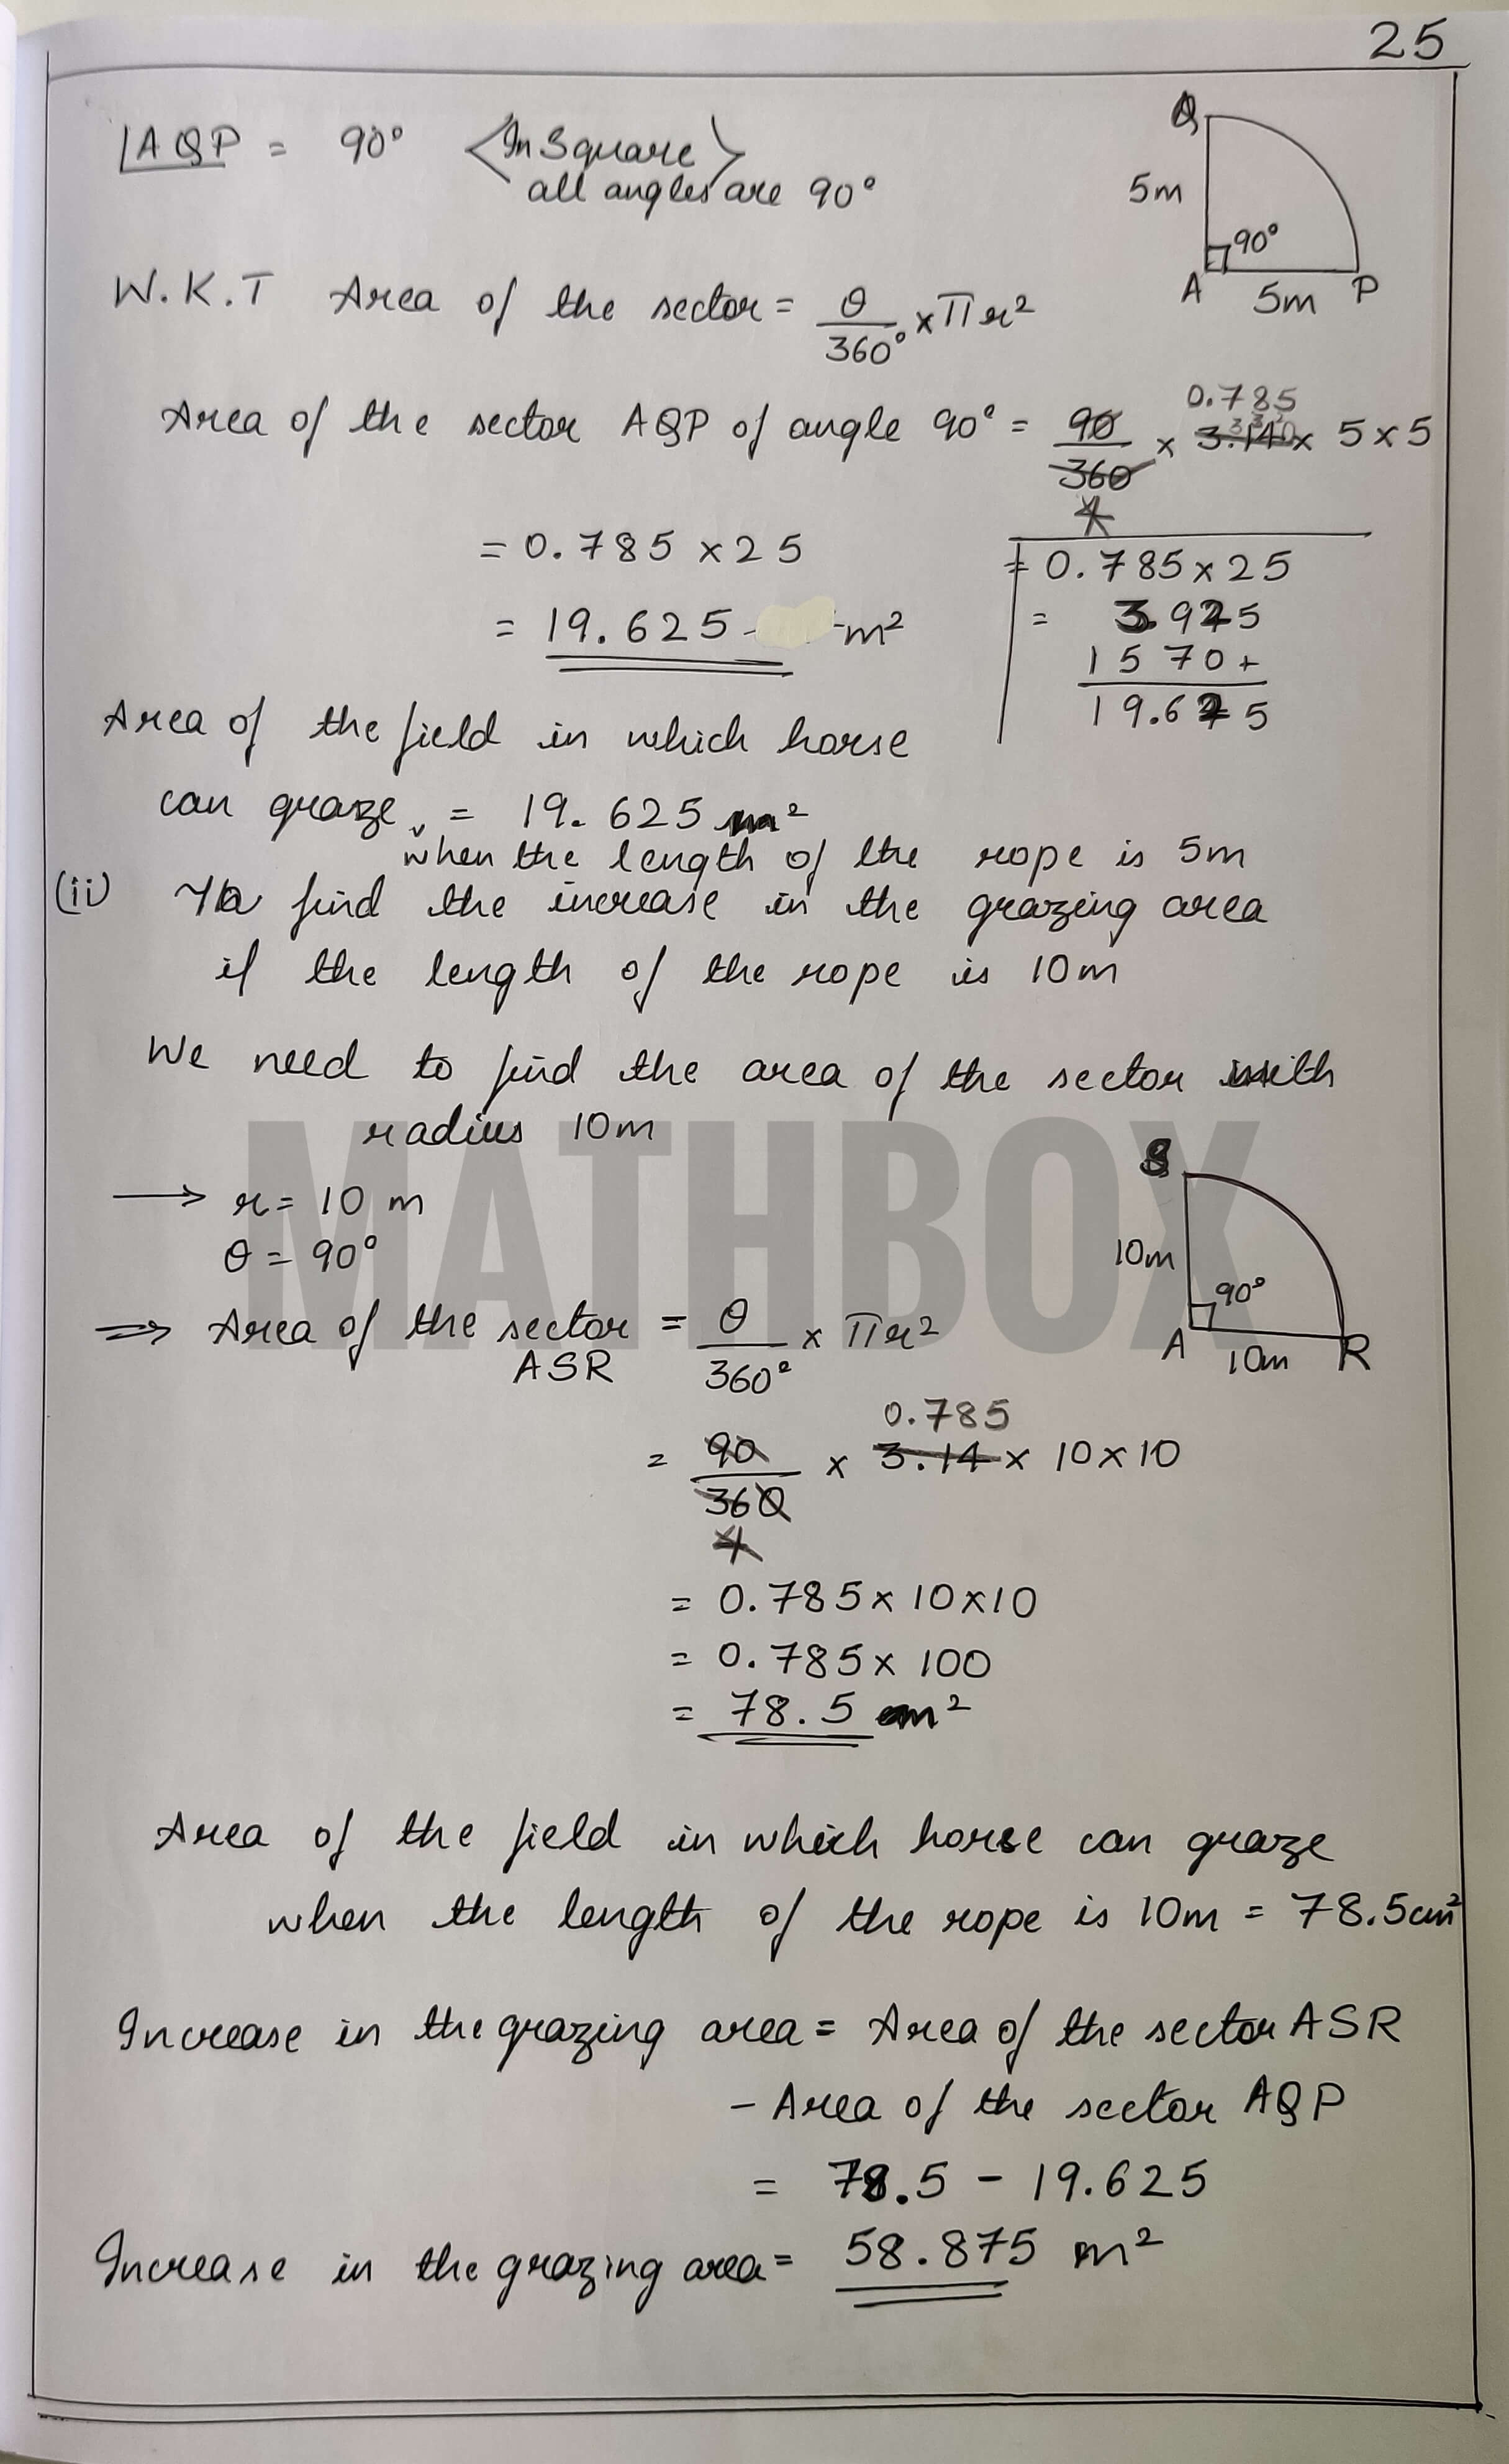 25
∠AQP = 90° <In Square
all angles are 90°>
Q
5m
90°
A 5m P
W.K.T Area of the sector = θ/360° × πr²
0.785
Area of the sector AQP of angle 90° = 90/360 × 3.14 × 5 × 5
4
= 0.785 × 25
= 19.625 m²
= 0.785 × 25
= 3925
1570+
19.625
Area of the field in which horse
can graze = 19.625 m²
when the length of the rope is 5m
(ii) To find the increase in the grazing area
if the length of the rope is 10m
We need to find the area of the sector with
radius 10m
MATHBOX
→ r = 10 m
θ = 90°
S
10m
90°
A 10m R
⇒ Area of the sector = θ/360° × πr²
ASR
0.785
= 90/360 × 3.14 × 10 × 10
4
= 0.785 × 10 × 10
= 0.785 × 100
= 78.5 m²
Area of the field in which horse can graze
when the length of the rope is 10m = 78.5cm²
Increase in the grazing area = Area of the sector ASR
- Area of the sector AQP
= 78.5 - 19.625
Increase in the grazing area = 58.875 m²